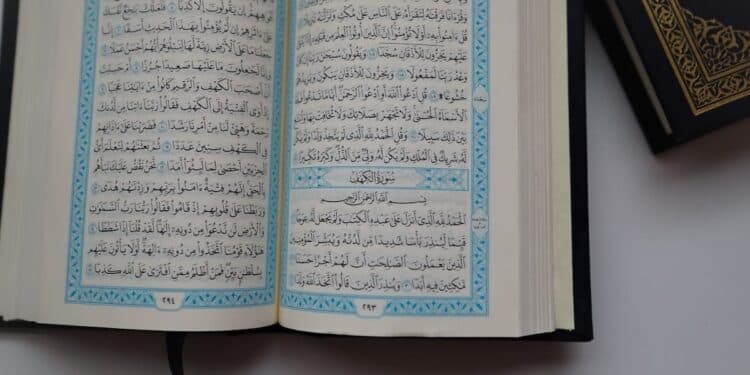 وَقُرْءَانًا فَرَقْنَٰهُ لِتَقْرَأَهُۥ عَلَى ٱلنَّاسِ عَلَىٰ مُكْثٍ وَنَزَّلْنَٰهُ تَنزِيلًا
قُلْ ءَامِنُوا۟ بِهِۦٓ أَوْ لَا تُؤْمِنُوٓا۟ إِنَّ ٱلَّذِينَ أُوتُوا۟ ٱلْعِلْمَ مِن قَبْلِهِۦٓ إِذَا يُتْلَىٰ
عَلَيْهِمْ يَخِرُّونَ لِلْأَذْقَانِ سُجَّدًا ١٠٧ وَيَقُولُونَ سُبْحَٰنَ رَبِّنَآ إِن كَانَ
وَعْدُ رَبِّنَا لَمَفْعُولًا ١٠٨ وَيَخِرُّونَ لِلْأَذْقَانِ يَبْكُونَ وَيَزِيدُهُمْ
خُشُوعًا ١٠٩ قُلِ ٱدْعُوا۟ ٱللَّهَ أَوِ ٱدْعُوا۟ ٱلرَّحْمَٰنَ أَيًّا مَّا تَدْعُوا۟ فَلَهُ
ٱلْأَسْمَآءُ ٱلْحُسْنَىٰ وَلَا تَجْهَرْ بِصَلَاتِكَ وَلَا تُخَافِتْ بِهَا وَٱبْتَغِ
بَيْنَ ذَٰلِكَ سَبِيلًا ١١٠ وَقُلِ ٱلْحَمْدُ لِلَّهِ ٱلَّذِى لَمْ يَتَّخِذْ وَلَدًا وَلَمْ يَكُن
لَّهُۥ شَرِيكٌ فِى ٱلْمُلْكِ وَلَمْ يَكُن لَّهُۥ وَلِىٌّ مِّنَ ٱلذُّلِّ وَكَبِّرْهُ تَكْبِيرًۢا ١١١
سُورَةُ الكَهْفِ
بِسْمِ ٱللَّهِ ٱلرَّحْمَٰنِ ٱلرَّحِيمِ
ٱلْحَمْدُ لِلَّهِ ٱلَّذِىٓ أَنزَلَ عَلَىٰ عَبْدِهِ ٱلْكِتَٰبَ وَلَمْ يَجْعَل لَّهُۥ عِوَجَا ١
قَيِّمًا لِّيُنذِرَ بَأْسًا شَدِيدًا مِّن لَّدُنْهُ وَيُبَشِّرَ ٱلْمُؤْمِنِينَ
ٱلَّذِينَ يَعْمَلُونَ ٱلصَّٰلِحَٰتِ أَنَّ لَهُمْ أَجْرًا حَسَنًا ٢
مَّٰكِثِينَ فِيهِ أَبَدًا ٣ وَيُنذِرَ ٱلَّذِينَ قَالُوا۟ ٱتَّخَذَ ٱللَّهُ وَلَدًا ٤
٢٩٣
إِن يَقُولُونَ إِلَّا كَذِبًا ٥ فَلَعَلَّكَ بَٰخِعٌ نَّفْسَكَ
عَلَىٰٓ ءَاثَٰرِهِمْ إِن لَّمْ يُؤْمِنُوا۟ بِهَٰذَا ٱلْحَدِيثِ أَسَفًا ٦ إِنَّا
جَعَلْنَا مَا عَلَى ٱلْأَرْضِ زِينَةً لَّهَا لِنَبْلُوَهُمْ أَيُّهُمْ أَحْسَنُ عَمَلًا ٧
وَإِنَّا لَجَٰعِلُونَ مَا عَلَيْهَا صَعِيدًا جُرُزًا ٨ أَمْ حَسِبْتَ
أَنَّ أَصْحَٰبَ ٱلْكَهْفِ وَٱلرَّقِيمِ كَانُوا۟ مِنْ ءَايَٰتِنَا عَجَبًا ٩
إِذْ أَوَى ٱلْفِتْيَةُ إِلَى ٱلْكَهْفِ فَقَالُوا۟ رَبَّنَآ ءَاتِنَا مِن لَّدُنكَ
رَحْمَةً وَهَيِّئْ لَنَا مِنْ أَمْرِنَا رَشَدًا ١٠ فَضَرَبْنَا عَلَىٰٓ ءَاذَانِهِمْ
فِى ٱلْكَهْفِ سِنِينَ عَدَدًا ١١ ثُمَّ بَعَثْنَٰهُمْ لِنَعْلَمَ أَىُّ
ٱلْحِزْبَيْنِ أَحْصَىٰ لِمَا لَبِثُوٓا۟ أَمَدًا ١٢ نَّحْنُ نَقُصُّ عَلَيْكَ نَبَأَهُم
بِٱلْحَقِّ إِنَّهُمْ فِتْيَةٌ ءَامَنُوا۟ بِرَبِّهِمْ وَزِدْنَٰهُمْ هُدًى ١٣
وَرَبَطْنَا عَلَىٰ قُلُوبِهِمْ إِذْ قَامُوا۟ فَقَالُوا۟ رَبُّنَا رَبُّ ٱلسَّمَٰوَٰتِ
وَٱلْأَرْضِ لَن نَّدْعُوَا۟ مِن دُونِهِۦٓ إِلَٰهًا لَّقَدْ قُلْنَآ إِذًا شَطَطًا ١٤
هَٰٓؤُلَآءِ قَوْمُنَا ٱتَّخَذُوا۟ مِن دُونِهِۦٓ ءَالِهَةً لَّوْلَا يَأْتُونَ عَلَيْهِم
بِسُلْطَٰنٍۭ بَيِّنٍ فَمَنْ أَظْلَمُ مِمَّنِ ٱفْتَرَىٰ عَلَى ٱللَّهِ كَذِبًا ١٥
٢٩٤